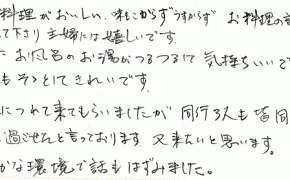 料理がおいしい、味もこからずうすからず お料理の
て下さり主婦には嬉しいです。
お風呂のお湯がつるつるして気持ちいいで
もそっとしてきれいです。
につれて来てもらいましたが 同行3人も皆同
過ごせたと言っております 又来たいと思います。
かな環境で話もはずみました。